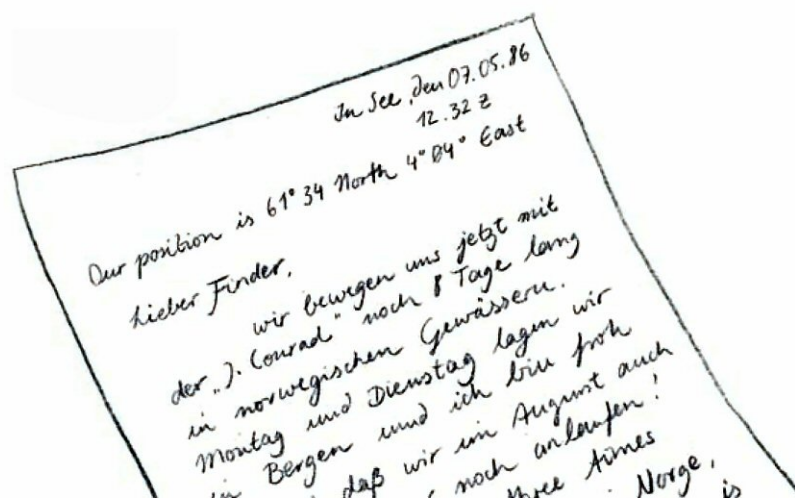 In See, den 07.05.86
12.32 Z
Our position is 61° 34 North 4° 04° East
Lieber Finder,
wir bewegen uns jetzt mit
der „J. Conrad" noch 8 Tage lang
in norwegischen Gewässern.
Montag und Dienstag lagen wir
in Bergen und ich bin froh
daß wir im August auch
noch anlaufen!
three times
Norge,
is